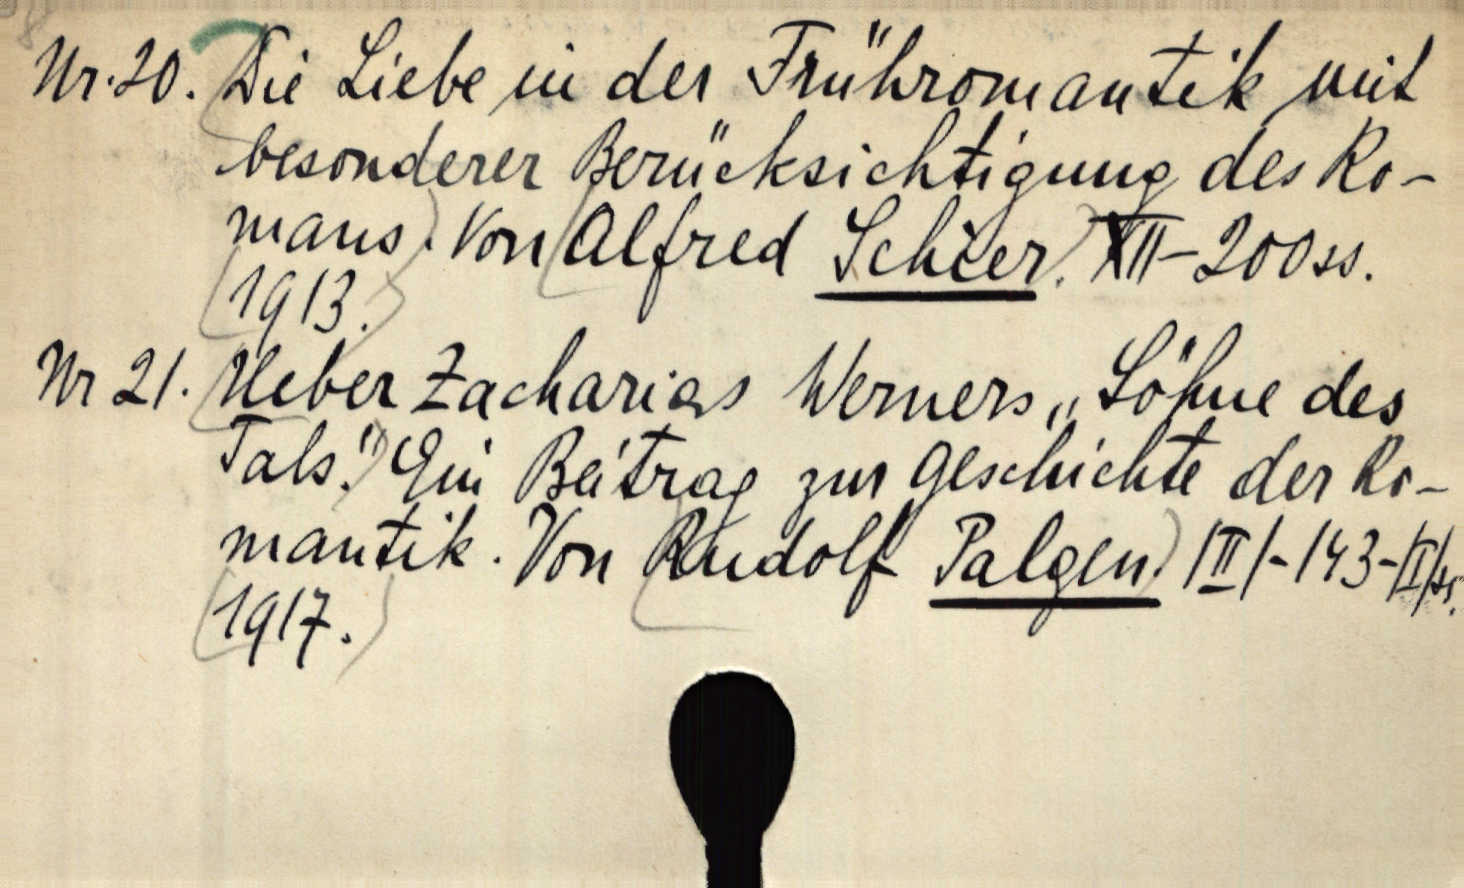 Nr. 20. Die Liebe in der Frühromantik mit
besonderer Berücksichtigung des Ro-
mans. Von Alfred Schier. XII-200 ss.
1913.
Nr 21. Ueber Zacharias Werners „Söhne des
Tals." Ein Beitrag zur Geschichte der Ro-
mantik. Von Rudolf Palgen /III/-143-/I/ss.
1917.